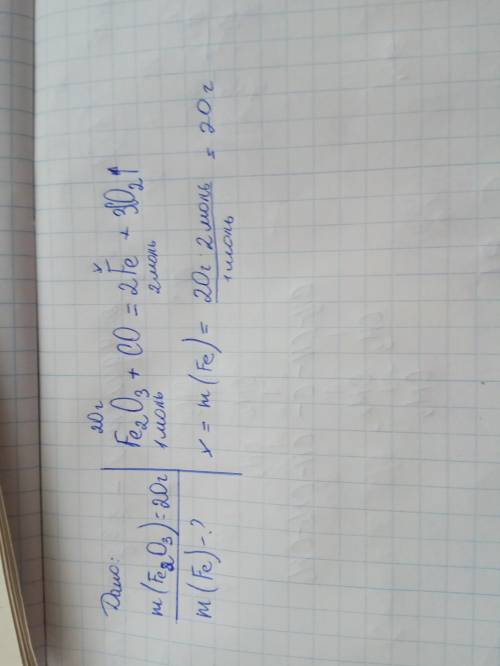 Дано:
m(Fe2O3)=20г
m(Fe)-?
20г x
Fe2O3 + CO = 2Fe + 3O2↑
1моль 2моль
x = m(Fe) = 20г · 2моль / 1моль = 20г